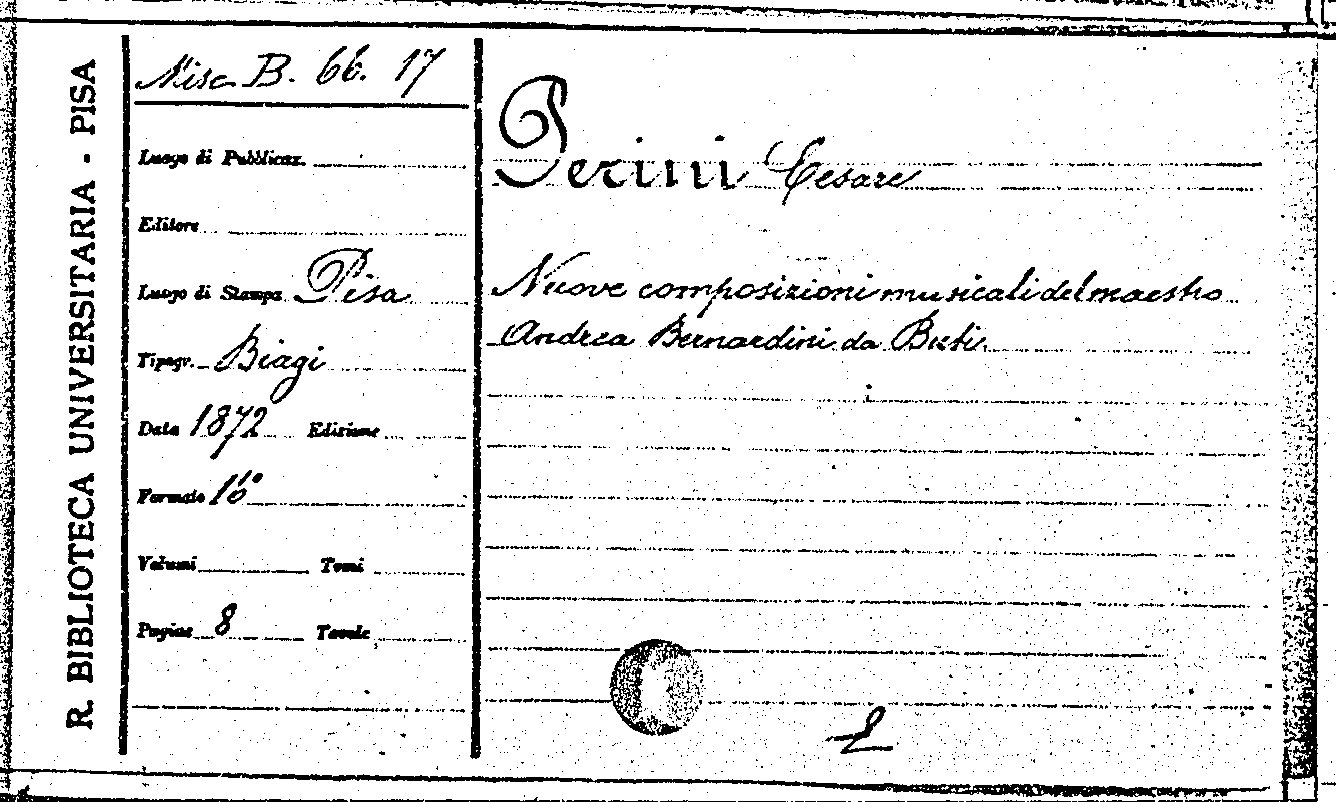 R. BIBLIOTECA UNIVERSITARIA - PISA
Misc B. 66. 17
Luogo di Pubblicaz.
Editore
Luogo di Stampa Pisa
Tipogr. Biagi
Data 1872 Edizione
Formato 16°
Volumi Tomi
Pagine 8 Tavole
Perini Cesare
Nuove composizioni musicali del maestro
Andrea Bernardini da Buti.